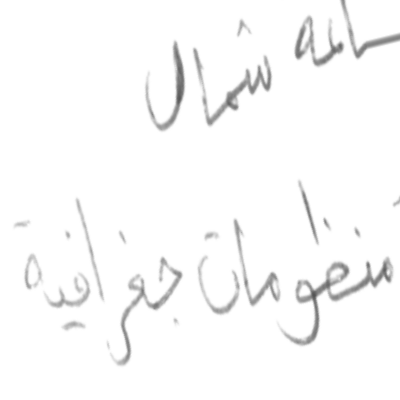 ساعه شمال
منظومات جغرافية